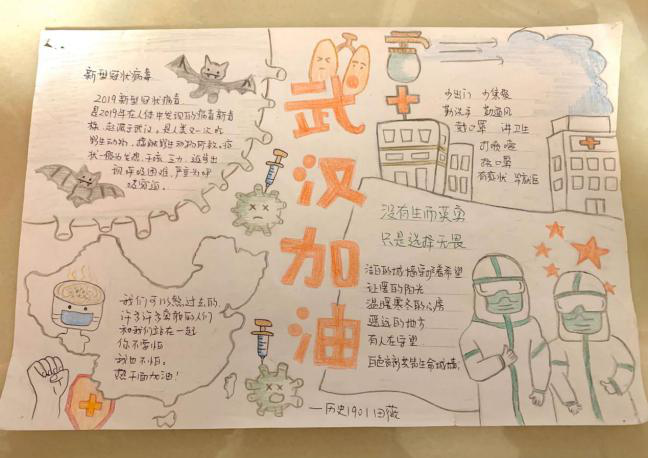 新型冠状病毒
2019新型冠状病毒
是2019年在人体中发现的病毒新毒
株,起源于武汉,是人类又一次吃
野生动物,接触野生动物所致。症
状一般为发热、干咳、乏力、逐步出
现呼吸困难,严重为呼
武汉加油
少出门 少集聚
勤洗手 勤通风
戴口罩 讲卫生
打喷嚏
捂口鼻
有症状 早就医
没有生而英勇
只是选择无畏
让暖的阳光
温暖寒冬的心房
遥远的地方
有人在守望
我们可以熬过去的
许许多多勇敢的人们
和我们站在一起
你不要怕
我也不怕。
热干面加油!
—历史1901 田薇